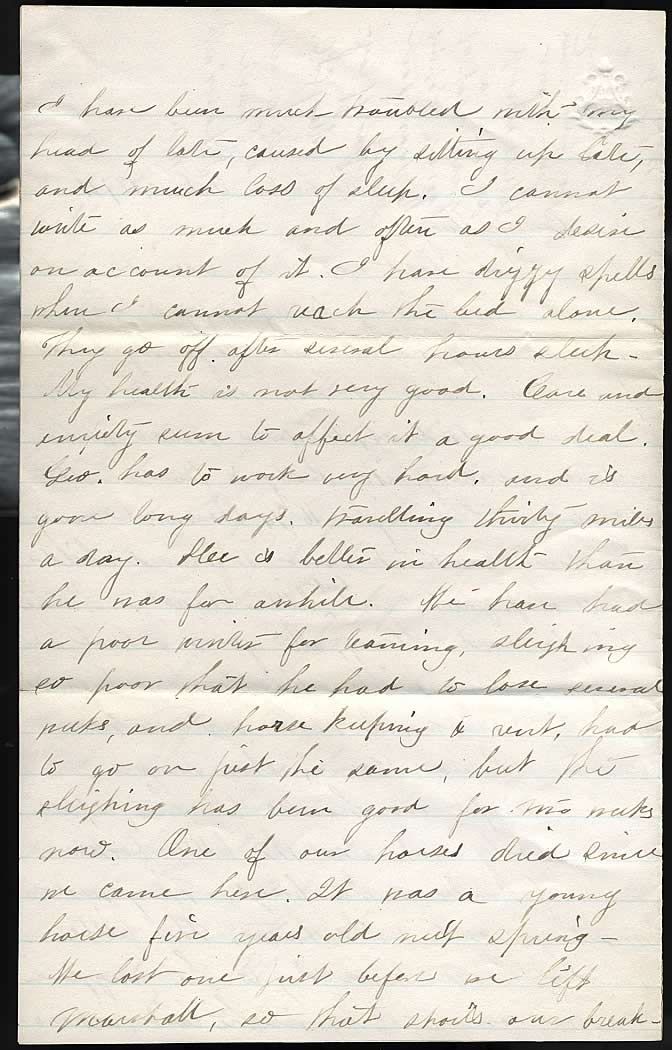 I have been much troubled with my
head of late, caused by sitting up late,
and much loss of sleep. I cannot
write as much and often as I desire
on account of it. I have dizzy spells
when I cannot reach the bed alone.
They go off after several hours sleep -
My health is not very good. Care and
anxiety seem to affect it a good deal.
Geo. has to work very hard, and is
gone long days. travelling thirty miles
a day. He is better in health than
he was for awhile. We have had
a poor winter for teaming, sleighing
so poor that he had to lose several
weeks, and horse keeping & rent, had
to go on just the same, but the
sleighing has been good for two weeks
now. One of our horses died since
we came here. It was a young
horse five years old next spring -
We lost one just before we left
Marshall, so that spoils our break-